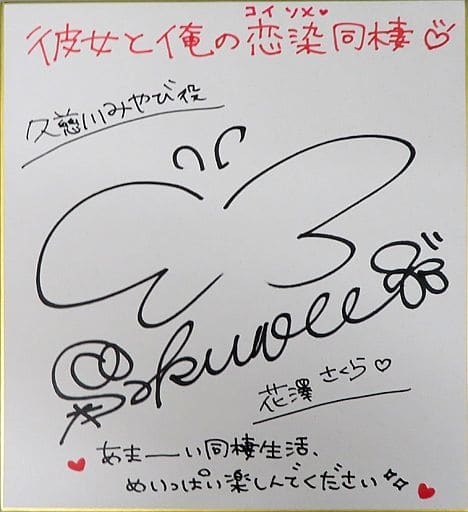 コイソメ♥
彼女と俺の恋染同棲♡
久慈川みやび役
Sakura
花澤さくら♡
あまーい同棲生活、
めいっぱい楽しんでください